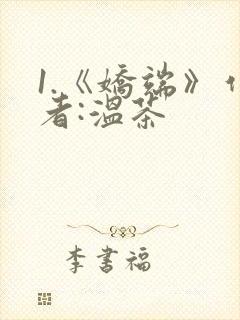 1.《嬌端》作
者:溫茶
李書福